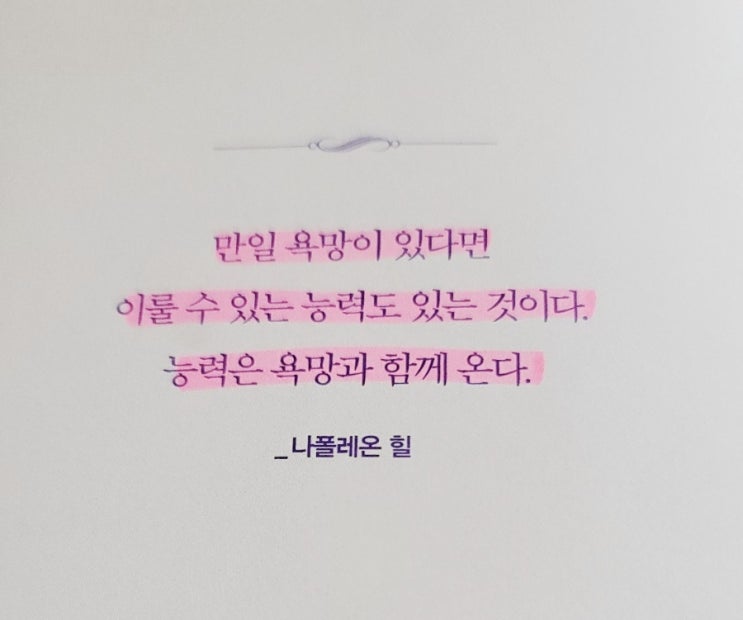 만일 욕망이 있다면
이룰 수 있는 능력도 있는 것이다.
능력은 욕망과 함께 온다.
_나폴레온 힐